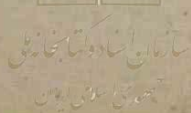 سازمان اسناد و کتابخانه ملی
جمهوری اسلامی ایران